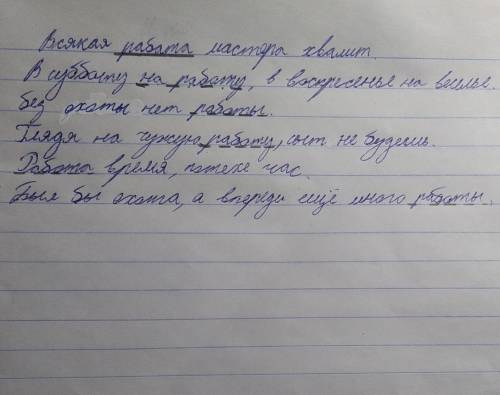 Всякая работа мастера хвалит.
В субботу на работу, в воскресенье на веселье.
без охоты нет работы.
Глядя на чужую работу, сыт не будешь.
Работа время, потехе час.
Была бы охота, а впереди ещё много работы.